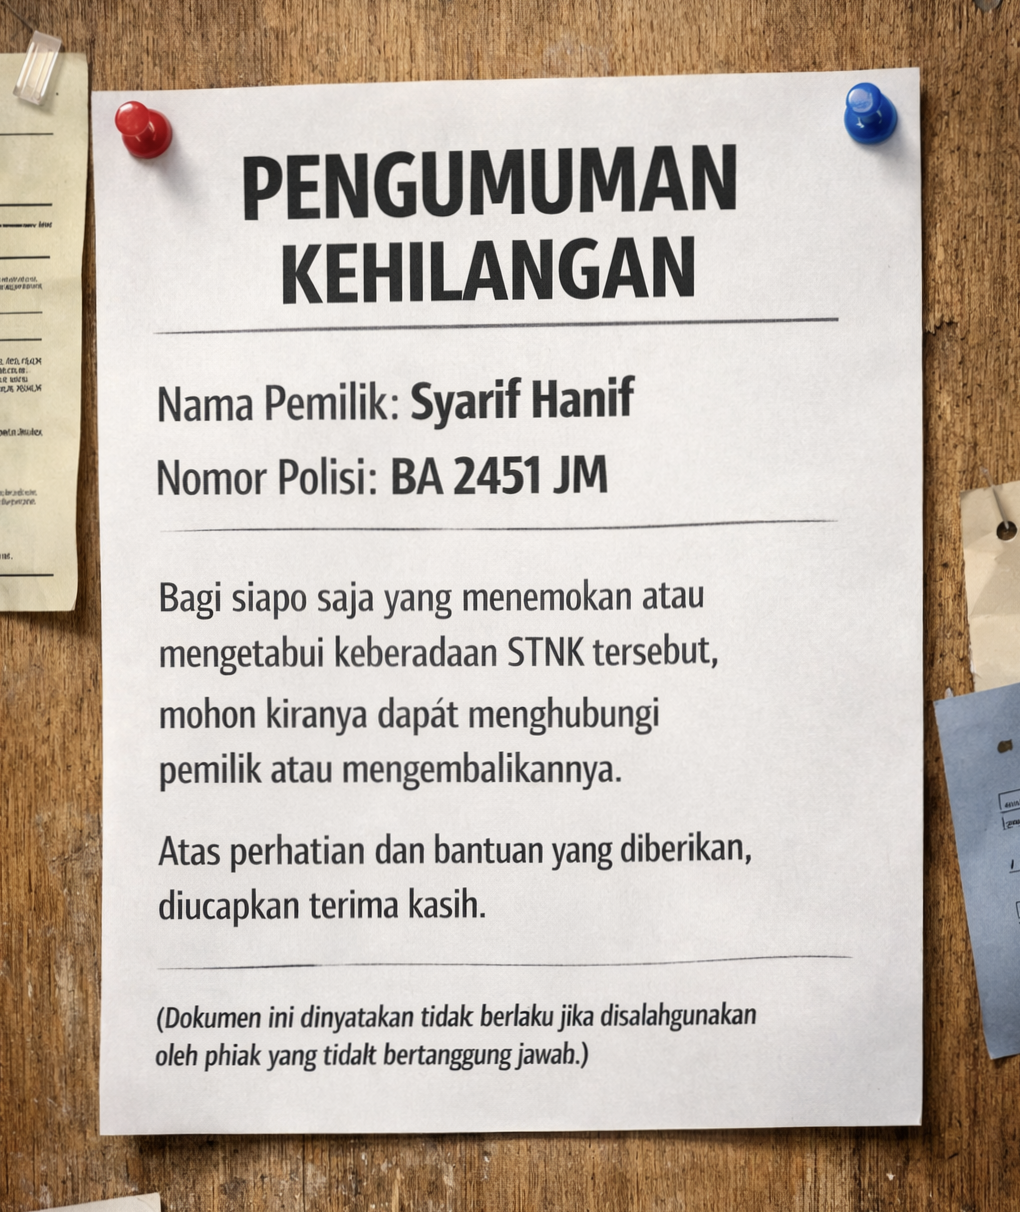 PENGUMUMAN
KEHILANGAN
Nama Pemilik: Syarif Hanif
Nomor Polisi: BA 2451 JM
Bagi siapo saja yang menemokan atau
mengetabui keberadaan STNK tersebut,
mohon kiranya dapát menghubungi
pemilik atau mengembalikannya.
Atas perhatian dan bantuan yang diberikan,
diucapkan terima kasih.
(Dokumen ini dinyatakan tidak berlaku jika disalahgunakan
oleh phiak yang tidalt bertanggung jawah.)